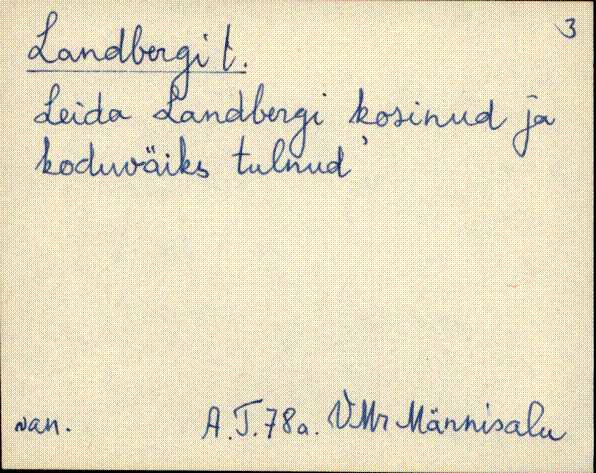 3
Landbergi t.
Leida Landbergi kosinud ja
koduväiks tulnud'
van. A.T.78a. VMr Männisalu